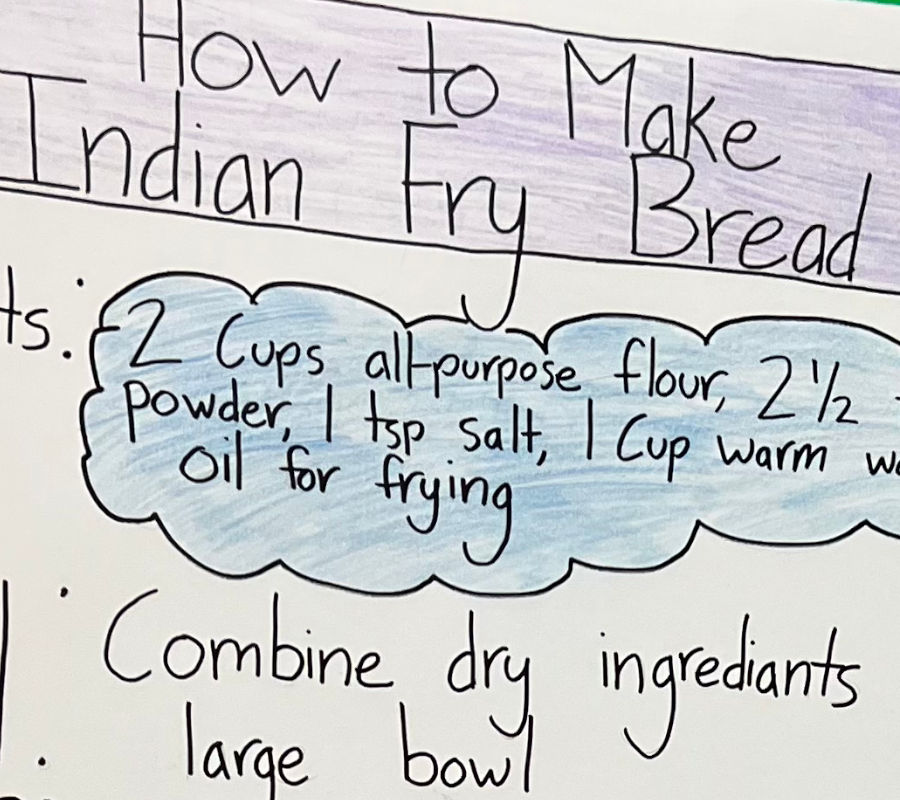 How to Make
Indian Fry Bread
2 Cups all-purpose flour, 2 ½
powder, 1 tsp salt, 1 Cup warm
oil for frying
Combine dry ingrediants
large bowl